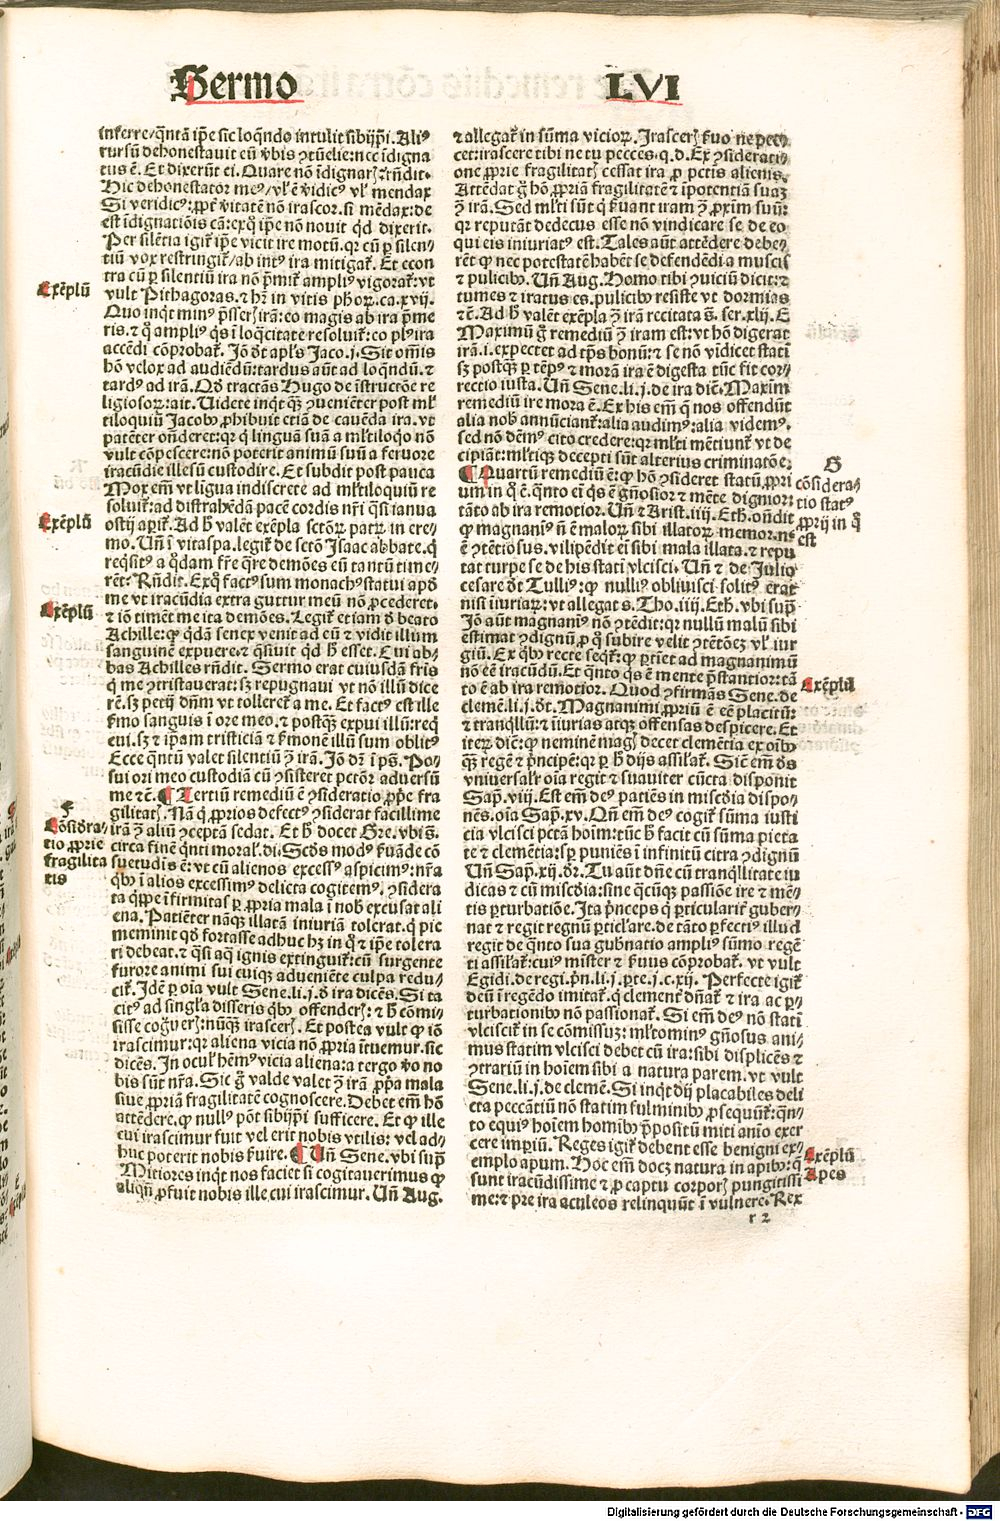 Sermo LVI
inferre/qntã ip̃e sic loqñdo intulit sibijp̃i. Aliꝰ
rursũ dehonestavit eũ v̓bis ꝯtũelie: nec ĩdigna
tus ẽ. Et dixerũt ei. Quare nõ ĩdignarꝭ? rñdit.
Hic dehonestator meꝰ/ vl̓ ẽ v̓idicꝰ vl̓ mendax
Si veridicꝰ: ꝓpt̓ v̓itatẽ nõ irascor. si mẽdax: de
est ĩdignatiõis cã: exq̃ ip̃e nõ novit qd̓ dixerit.
Per silẽtia igit̃ ip̃e vicit ire motũ. qꝛ cũ ꝑ silen-
tiũ vox restringit̃/ ab intꝰ ira mitigat̃. Et econ
tra cũ ꝑ silentiũ ira nõ p̃mit̃ ampliꝰ vigorat̃: vt
Exẽplũ
vult Pithagoras. ⁊ hr̃ in vitis ph̃oꝝ. ca. xvij.
Quo inq̃t minꝰ p̃sserꝭ irã: eo magis ab ira p̃me
ris. ⁊ q̃ ampliꝰ q̃s ĩ loq̃citate resoluit̃: co plꝰ ira
accẽdi cõprobat̃. Jõ d̓t apl̓s Jaco. j. Sit om̃is
hõ velox ad audiẽdũ: tardus aũt ad loqñdũ. ⁊
tardꝰ ad irã. Qd̓ tractãs Hugo de ĩstructõe re
ligiosoꝝ: ait. Videte inq̃t q̃ꝫ ꝯueniẽter post ml̓
tiloquiũ Jacobꝰ ꝓhibuit etiã de cauẽda ira. vt
patẽter oñderet: qꝛ q̃ linguã suã a ml̓tiloq̃o nõ
vult cõpescere: nõ poterit animũ suũ a feruore
iracũdie illesũ custodire. Et subdit post pauca
Mox em̃ vt ligua indiscrete ad ml̓tiloquiũ re
soluit̃: ad distrahẽdã pacẽ cordis nr̃i q̃si ianua
Exẽplũ
ostij apit̃. Ad h̓ valẽt exẽpla sctõꝝ patꝝ in ere/
mo. Uñ ĩ vitaspa. legit̃ de sctõ Isaac abbate. q̃
req̃sitꝰ a q̃dam fr̃e q̃re demões eũ tantũ time-
rẽt? Rñdit. Exq̃ factꝰ sum monachꝰ statui apd̓
me vt iracũdia extra guttur meũ nõ ꝓcederet.
Exẽplũ
⁊ iõ timẽt me ita demões. Legit̃ etiam d̓ beato
Achille: ꝙ q̃dã senex venit ad eũ ⁊ vidit illum
sanguinẽ expuere. ⁊ q̃siuit qd̓ h̓ esset. Cui ab/
bas Achilles rñdit. Sermo erat cuiusdã fris
q̃ me ꝯtristauerat: sꝫ repugnaui vt nõ illũ dice
rẽ. sꝫ petij dñm vt tolleret̃ a me. Et factꝰ est ille
s̓mo sanguis ĩ ore meo. ⁊ postq̃ꝫ expui illũ: req̃
eui. sꝫ ⁊ ip̃am tristiciã ⁊ s̓monẽ illũ sum oblitꝰ
Ecce qntũ valet silentiũ ꝯ̃ irã. Jõ dr̃ ĩ ps̃. Po/
sui ori meo custodiã cũ ꝯsisteret pctõr aduersũ
me ⁊c̃. ¶ Tertiũ remediũ ẽ ꝯsideratio ꝓp̃e fra
F
gilitatꝭ. Nã q̃ ꝓprios defectꝰ ꝯsiderat facillime
Cõsid̓ra/
tio ꝓprie
fragilita
tis
irã ꝯ̃ aliũ ꝯceptã sedat. Et h̓ docet Gre. vbi s̃.
circa finẽ qnti moral̓. di. Scd̓s modꝰ s̓uãde cõ
suetudis ẽ: vt cũ alienos excessꝰ aspicimꝰ: nr̃a
qb̓ꝰ ĩ alios excessimꝰ delicta cogitemꝰ. ꝯsidera
ta q̃ppe ĩfirmitas ꝑ ꝓpria mala ĩ nob̓ excusat ali
ena. Patiẽter nãq̃ꝫ illatã iniuriã tolerat. q̃ pie
meminit qd̓ fortasse adhuc hꝫ in q̃ ⁊ ip̃e tolera
ri debeat. ⁊ q̃si aq̃ ignis extinguit̃: cũ surgente
furore animi sui cuiq̃ꝫ adueniẽte culpa redu/
cit̃. Jdẽ ꝑ oĩa vult Sene. li. j. d̓ ira dicẽs. Si ta
citꝰ ad singl̓a disseris qb̓ꝰ offenderꝭ: ⁊ h̓ cõmi/
sisse cog̃uerꝭ: nũq̃ꝫ irascerꝭ. Et postea vult ꝙ iõ
irascimur: qꝛ aliena vicia nõ ꝓpria ĩtuemur. sic
dicẽs. Jn ocul̓ hẽmꝰ vicia aliena: a tergo v̓o no
bis sũt nr̃a. Sic g̃ valde valet ꝯ̃ irã ꝓp̃a mala
siue ꝓpriã fragilitatẽ cognoscere. Debet em̃ hõ
attẽdere. ꝙ nullꝰ põt sibijp̃i sufficere. Et ꝙ ille
cui irascimur fuit vel erit nobis vtilis: vel ad/
huc poterit nobis s̓uire. ¶ Uñ Sene. vbi sup̃
Mitiores inq̃t nos faciet si cogitauerimus ꝙ
aliqñ ꝓfuit nobis ille cui irascimur. Uñ Aug.
⁊ allegat̃ in sũma vicioꝝ. Jrascerꝭ s̓uo ne pec-
cet: irascere tibi ne tu pecces. q. d. Ex ꝯsiderati-
one ꝓprie fragilitatꝭ cessat ira ꝓ pctis alienis.
Attẽdat g̃ hõ ꝓpriã fragilitatẽ ⁊ ĩpotentiã suaꝫ
ꝯ̃ irã. Sed ml̓ti sũt q̃ s̓uant iram ꝯ̃ ꝓxim̃ suũ:
qꝛ reputãt dedecus esse nõ vindicare se de eo
qui eis iniuriatꝰ est. Tales aũt attẽdere debe/
rẽt ꝙ nec potestatẽ habẽt se defendẽdi a muscis
⁊ pulicibꝰ. Uñ Aug. Homo tibi ꝯuiciũ dicit: ⁊
tumes ⁊ iratus es. pulicibꝰ resiste vt dormias
⁊c̃. Ad h̓ valẽt exẽpla ꝯ̃ irã recitata s̃. ser. xlij. E
Maximũ g̃ remediũ ꝯ̃ iram est: vt hõ digerat
irã. i. expectet ad tp̃s bonũ: ⁊ se nõ vĩdicet stati
sꝫ postq̃ꝫ ꝑ tẽpꝰ ⁊ morã ira ẽ digesta tũc fit cor/
rectio iusta. Uñ Sene. li. j. de ira dic̃. Maxim̃
remediũ ire mora ẽ. Ex his em̃ q̃ nos offendũt
alia nob̓ annũciant̃: alia audimꝰ: alia videmꝰ.
sed nõ dẽmꝰ cito credere: qꝛ ml̓ti mẽtiunt̃ vt de
cipiãt: ml̓tiq̃ꝫ decepti sũt alterius criminatõe.
¶ Quartũ remediũ ẽ: ꝙ hõ ꝯsideret statũ ꝓpri
G
cõsidera/
tio statꝰ
ꝓprij in q̃
est
um in q̃ ẽ. qnto ei q̃s ẽ gñosior ⁊ mẽte dignior:
tãto ab ira remotior. Uñ ⁊ Arist. iiij. Eth. oñdit
ꝙ magnaniꝰ ñ ẽ maloꝝ sibi illatoꝝ memor. nec
ẽ ꝯtẽtiosus. vilipẽdit ei sibi mala illata. ⁊ repu
tat turpe se de his stati vlcisci. Uñ ⁊ de Julio
cesare d̓t Tulliꝰ: ꝙ nulliꝰ obliuisci solitꝰ erat
nisi ĩiuriaꝝ: vt allegat s. Tho. iiij. Eth. vbi sup̃
Jõ aũt magnaniꝰ nõ ꝯtẽdit: qꝛ nullũ malũ sibi
estimat ꝯdignũ ꝓ q̃ subire velit ꝯtẽtões vl̓ iur
giũ. Ex qb̓ꝰ recte seq̃t̃: ꝙ ꝑtiet ad magnanimũ
nõ eẽ iracũdũ. Et qnto q̃s ẽ mente p̃stantior: tã
Exẽplũ
to ẽ ab ira remotior. Quod ꝯfirmãs Sene. de
clemẽ. li. j. d̓t. Magnanimi ꝓpriũ ẽ eẽ placitũ:
⁊ tranq̃llũ: ⁊ ĩiurias atq̃ꝫ offensas despicere. Et
iteꝝ dic̃: ꝙ neminẽ magꝭ decet clemẽtia ex oĩbꝰ
q̃ꝫ regẽ ⁊ p̃ncipẽ: qꝛ ꝑ h̓ dijs assilat̃. Sic̃ em̃ de̓s
vniuersal̓r oĩa regit ⁊ suauiter cũcta disponit
Sap̃. viij. Est em̃ deꝰ patiẽs in misc̓dia dispo-
nẽs. oĩa Sap̃. xv. Qñ em̃ deꝰ cogit̃ sũma iusti
cia vlcisci pctã hoĩm: tũc h̓ facit cũ sũma pieta
te ⁊ clemẽtia: sꝑ puniẽs ĩ infinitũ citra ꝯdignũ
Uñ Sap̃. xij. d̓r. Tu aũt dñe cũ tranq̃llitate iu
dicas ⁊ cũ misc̓dia: sine q̃cũq̃ꝫ passiõe ire ⁊ mẽ-
tis ꝑturbatiõe. Jta p̃nceps q̃ ꝑticularit̃ guber-
nat ⁊ regit regnũ ꝑticl̓are. de tãto ꝑfectiꝰ illud
regit de qnto sua gub̓natio ampliꝰ sũmo regẽ
ti assilat̃: cuiꝰ mister ⁊ s̓uus cõprobat̃. vt vult
Egidi. de regi. p̃n. li. j. ꝑte. j. c. xij. Perfecte igit̃
deũ ĩ regẽdo imitat̃. q̃ clement̃ dñat̃ ⁊ ira ac ꝑ-
turbationibꝰ nõ passionat̃. Si em̃ deꝰ nõ stati
vlciscit̃ in se cõmissuꝫ: ml̓tominꝰ gñosus ani/
mus statim vlcisci debet cũ ira: sibi displicẽs ⁊
ꝯtrariũ in hoiem sibi a natura parem. vt vult
Sene. li. j. de clemẽ. Si inq̃t dij placabiles deli
cta peccãtiũ nõ statim fulminibꝰ ꝓsequũt̃: qñ-
to equiꝰ hoiem homibꝰ p̃positũ miti anio exer
cere imꝑiũ. Reges igit̃ debent esse benigni ex/
Exẽplũ
Apes
emplo apum. Hoc em̃ docꝫ natura in apibꝰ: q̃
sunt iracũdissime ⁊ ꝓ captu corporꝭ pungitissi
me: ⁊ pre ira aculeos relinquũt ĩ vulnere. Rex
r 2
Digitalisierung gefördert durch die Deutsche Forschungsgemeinschaft - DFG